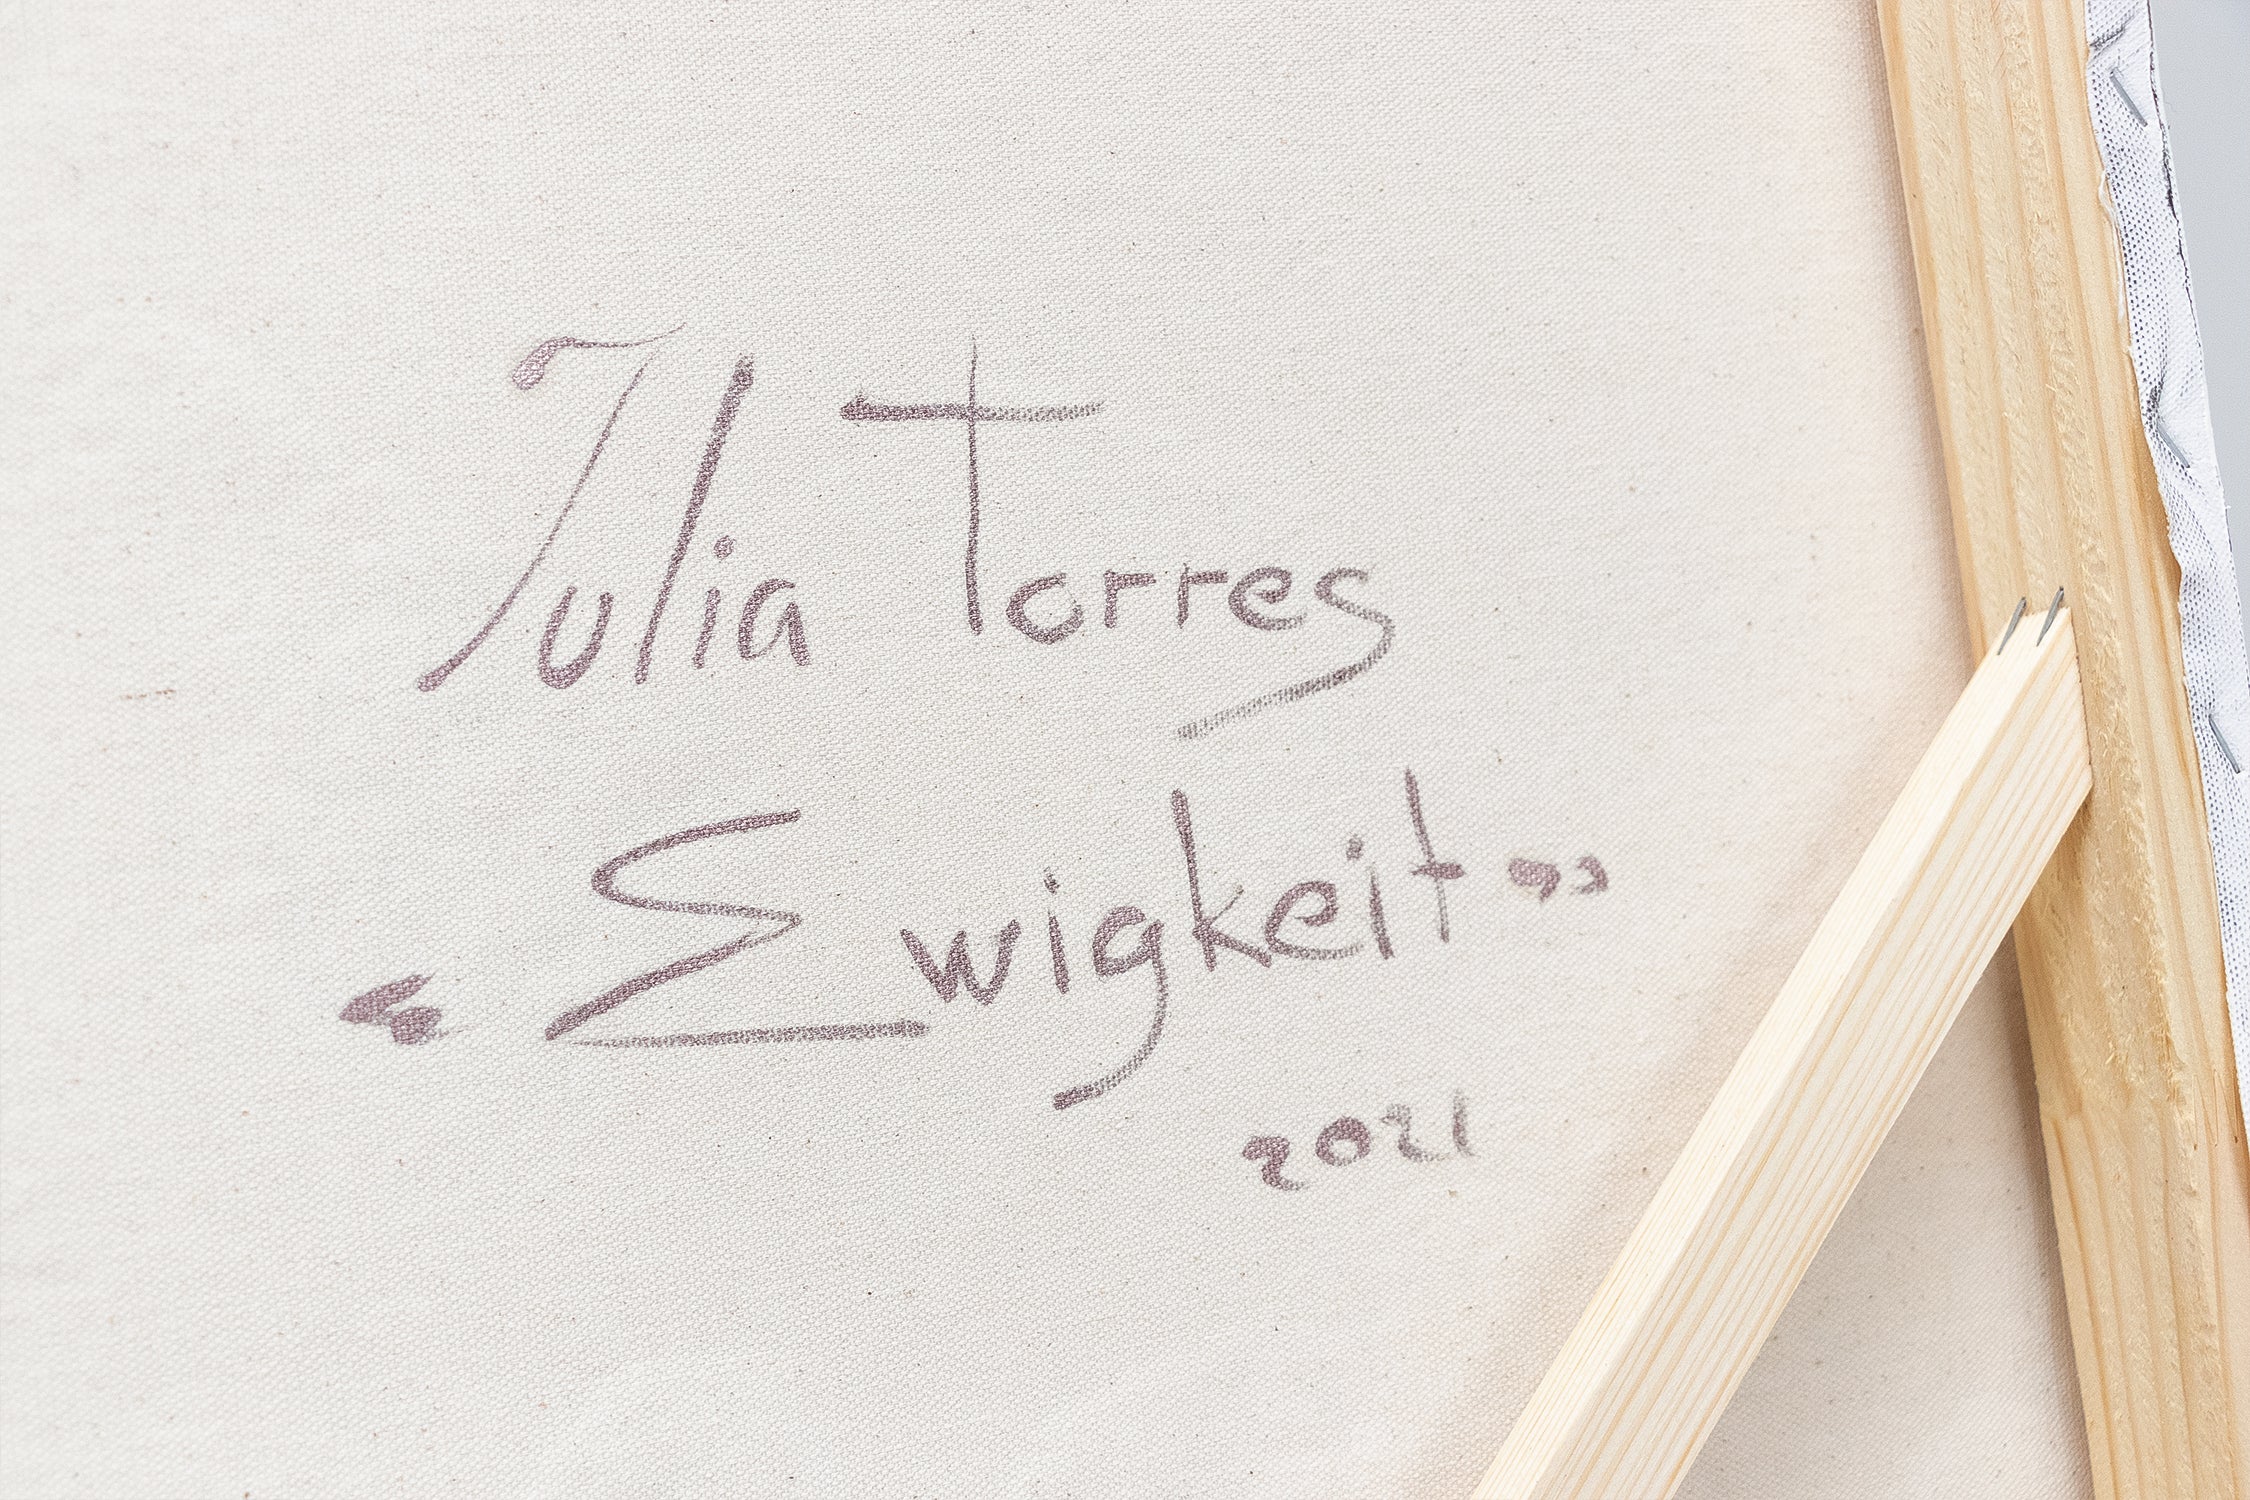 Julia Torres
“Ewigkeit”
2021